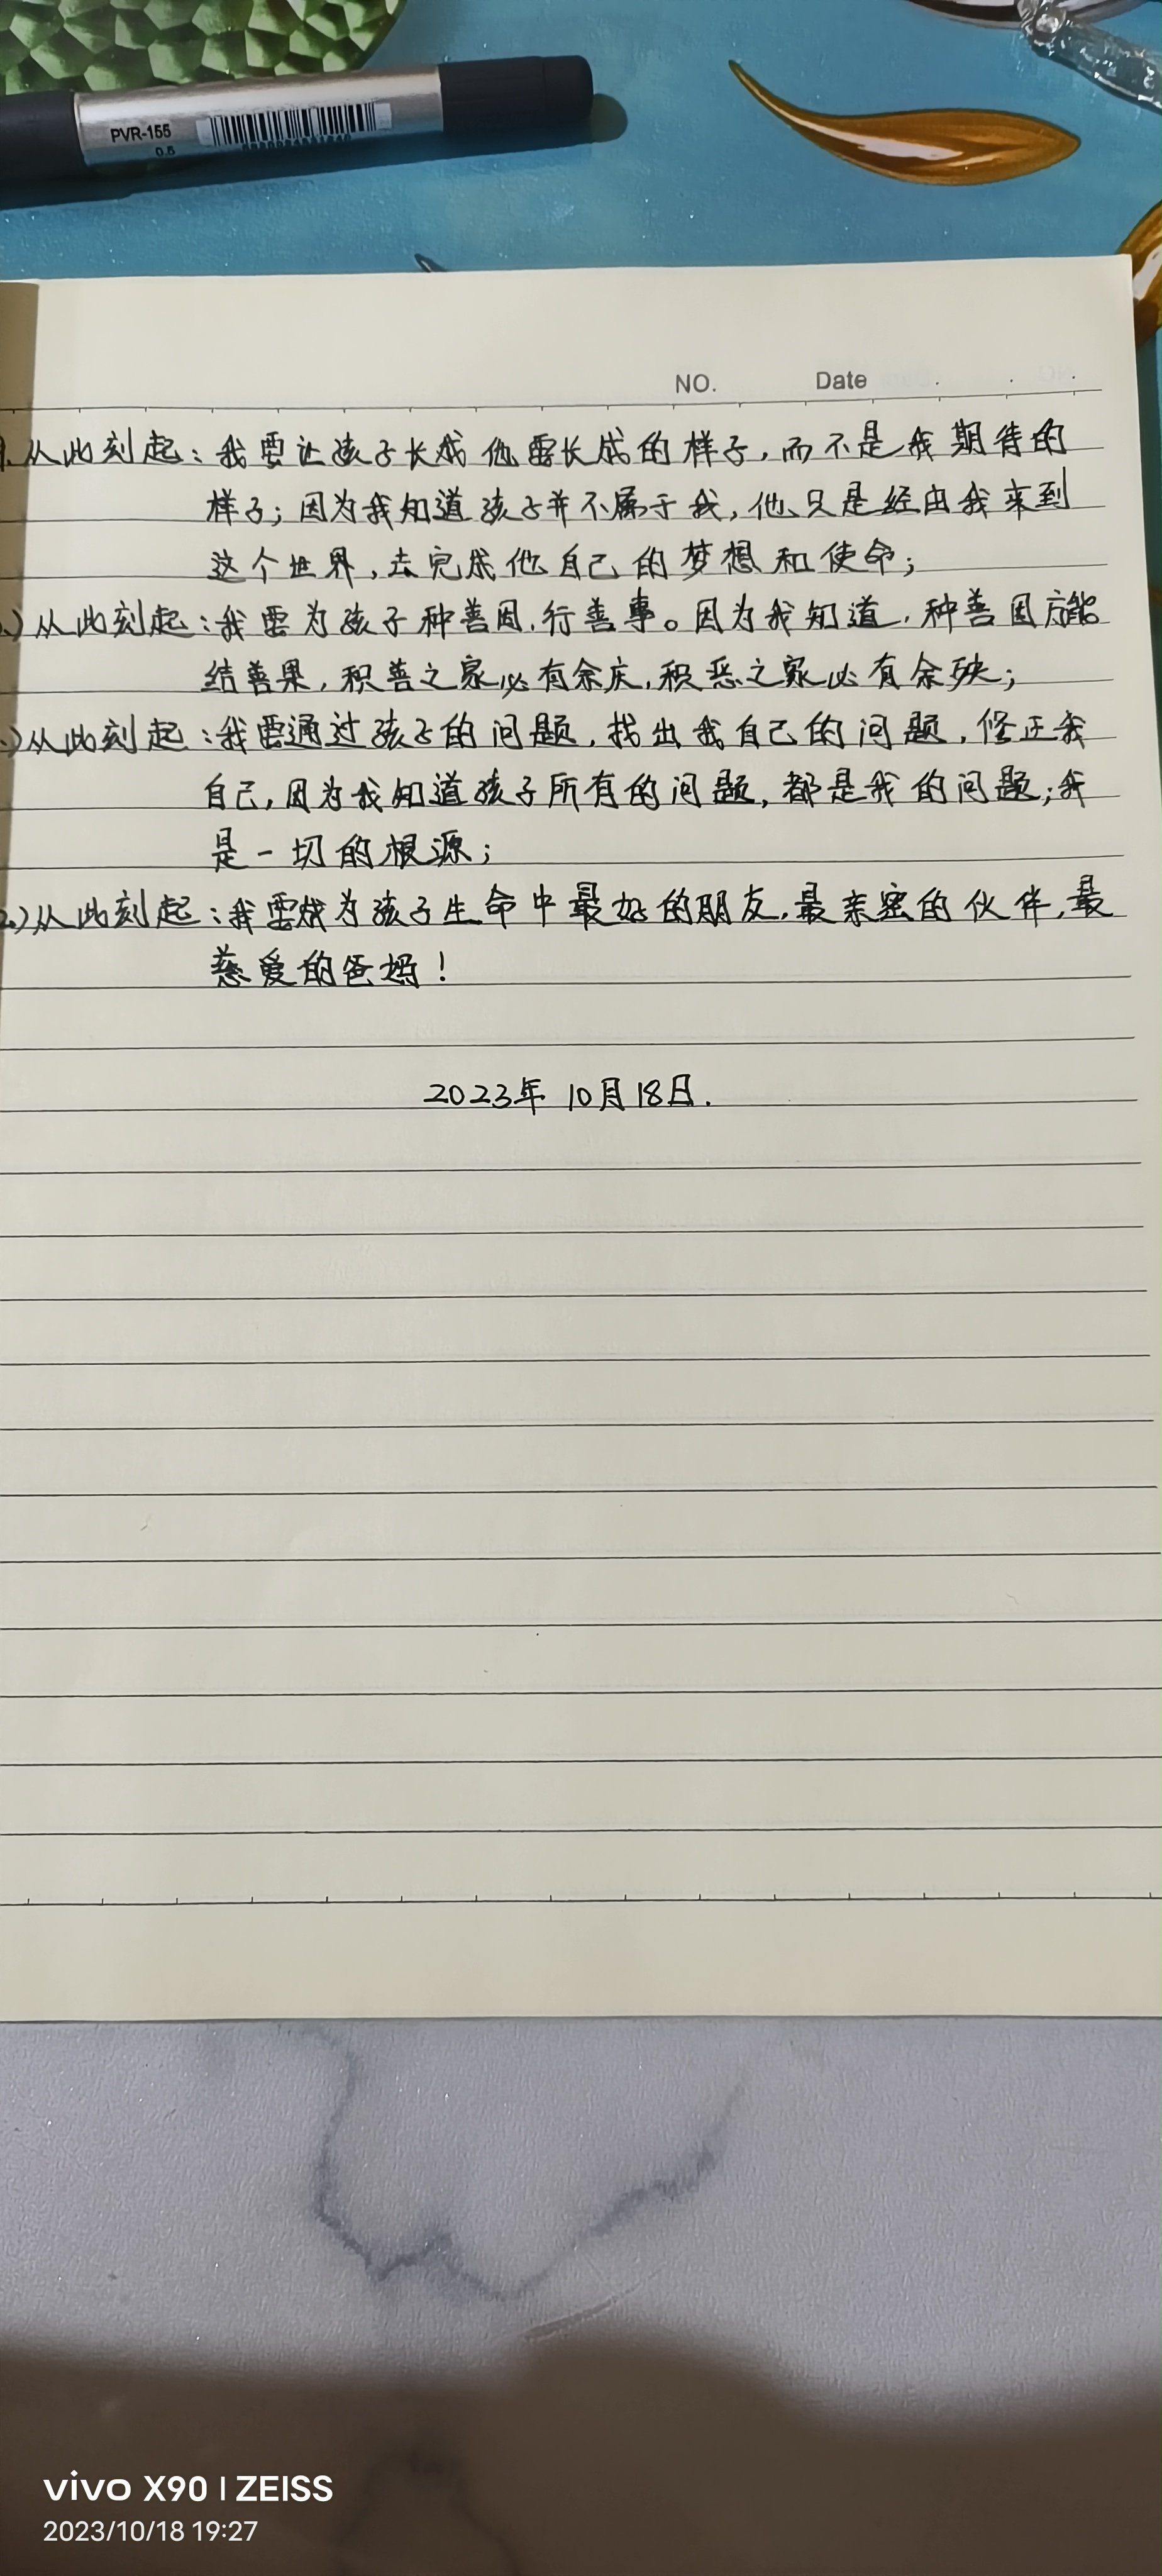 PVR-155
0.5
NO. Date
9.从此刻起：我要让孩子长成他需长成的样子，而不是我期待的
样子；因为我知道孩子并不属于我，他只是经由我来到
这个世界，去完成他自己的梦想和使命；
)从此刻起：我要为孩子种善因，行善事。因为我知道，种善因方能
结善果，积善之家必有余庆，积恶之家必有余殃；
)从此刻起：我要通过孩子的问题，找出我自己的问题，修正我
自己，因为我知道孩子所有的问题，都是我的问题；我
是一切的根源；
)从此刻起：我要成为孩子生命中最好的朋友，最亲密的伙伴，最
慈爱的爸妈！
2023年10月18日.
vivo X90 | ZEISS
2023/10/18 19:27